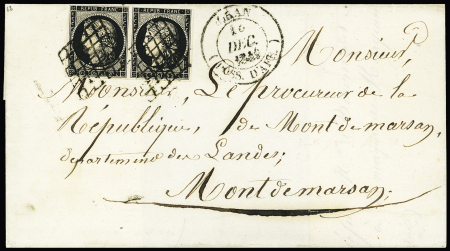 REPUB. FRANC. REPUB. FRANC.
ORAN
16
DEC.
(POSS. D'AFR.)
Monsieur,
Monsieur, Le procureur de la
République, de Mont de marsan,
departement des Landes;
Mont de marsan;